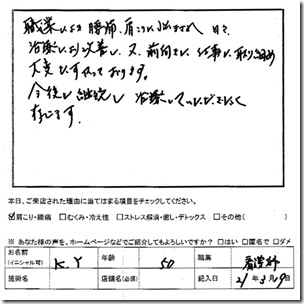 職業により腰痛、肩こりに悩まされ 日々、
治療により改善し、又、前向きに 仕事に取り組め
大変よろこんでおります。
今後も継続し 治療していただきたく
存じます。
本日、ご来店された理由に当てはまる項目をチェックしてください。
☑肩こり・腰痛 □むくみ・冷え性 □ストレス解消・癒し・デトックス □その他( )
※ あなた様の声を、ホームページなどでご紹介してもよろしいですか？ □はい □匿名で □ダメ
お名前 (イニシャル可) K.Y 年齢 50 職業 看護師
施術名 店舗名(必須) 記入日 21年3月19日